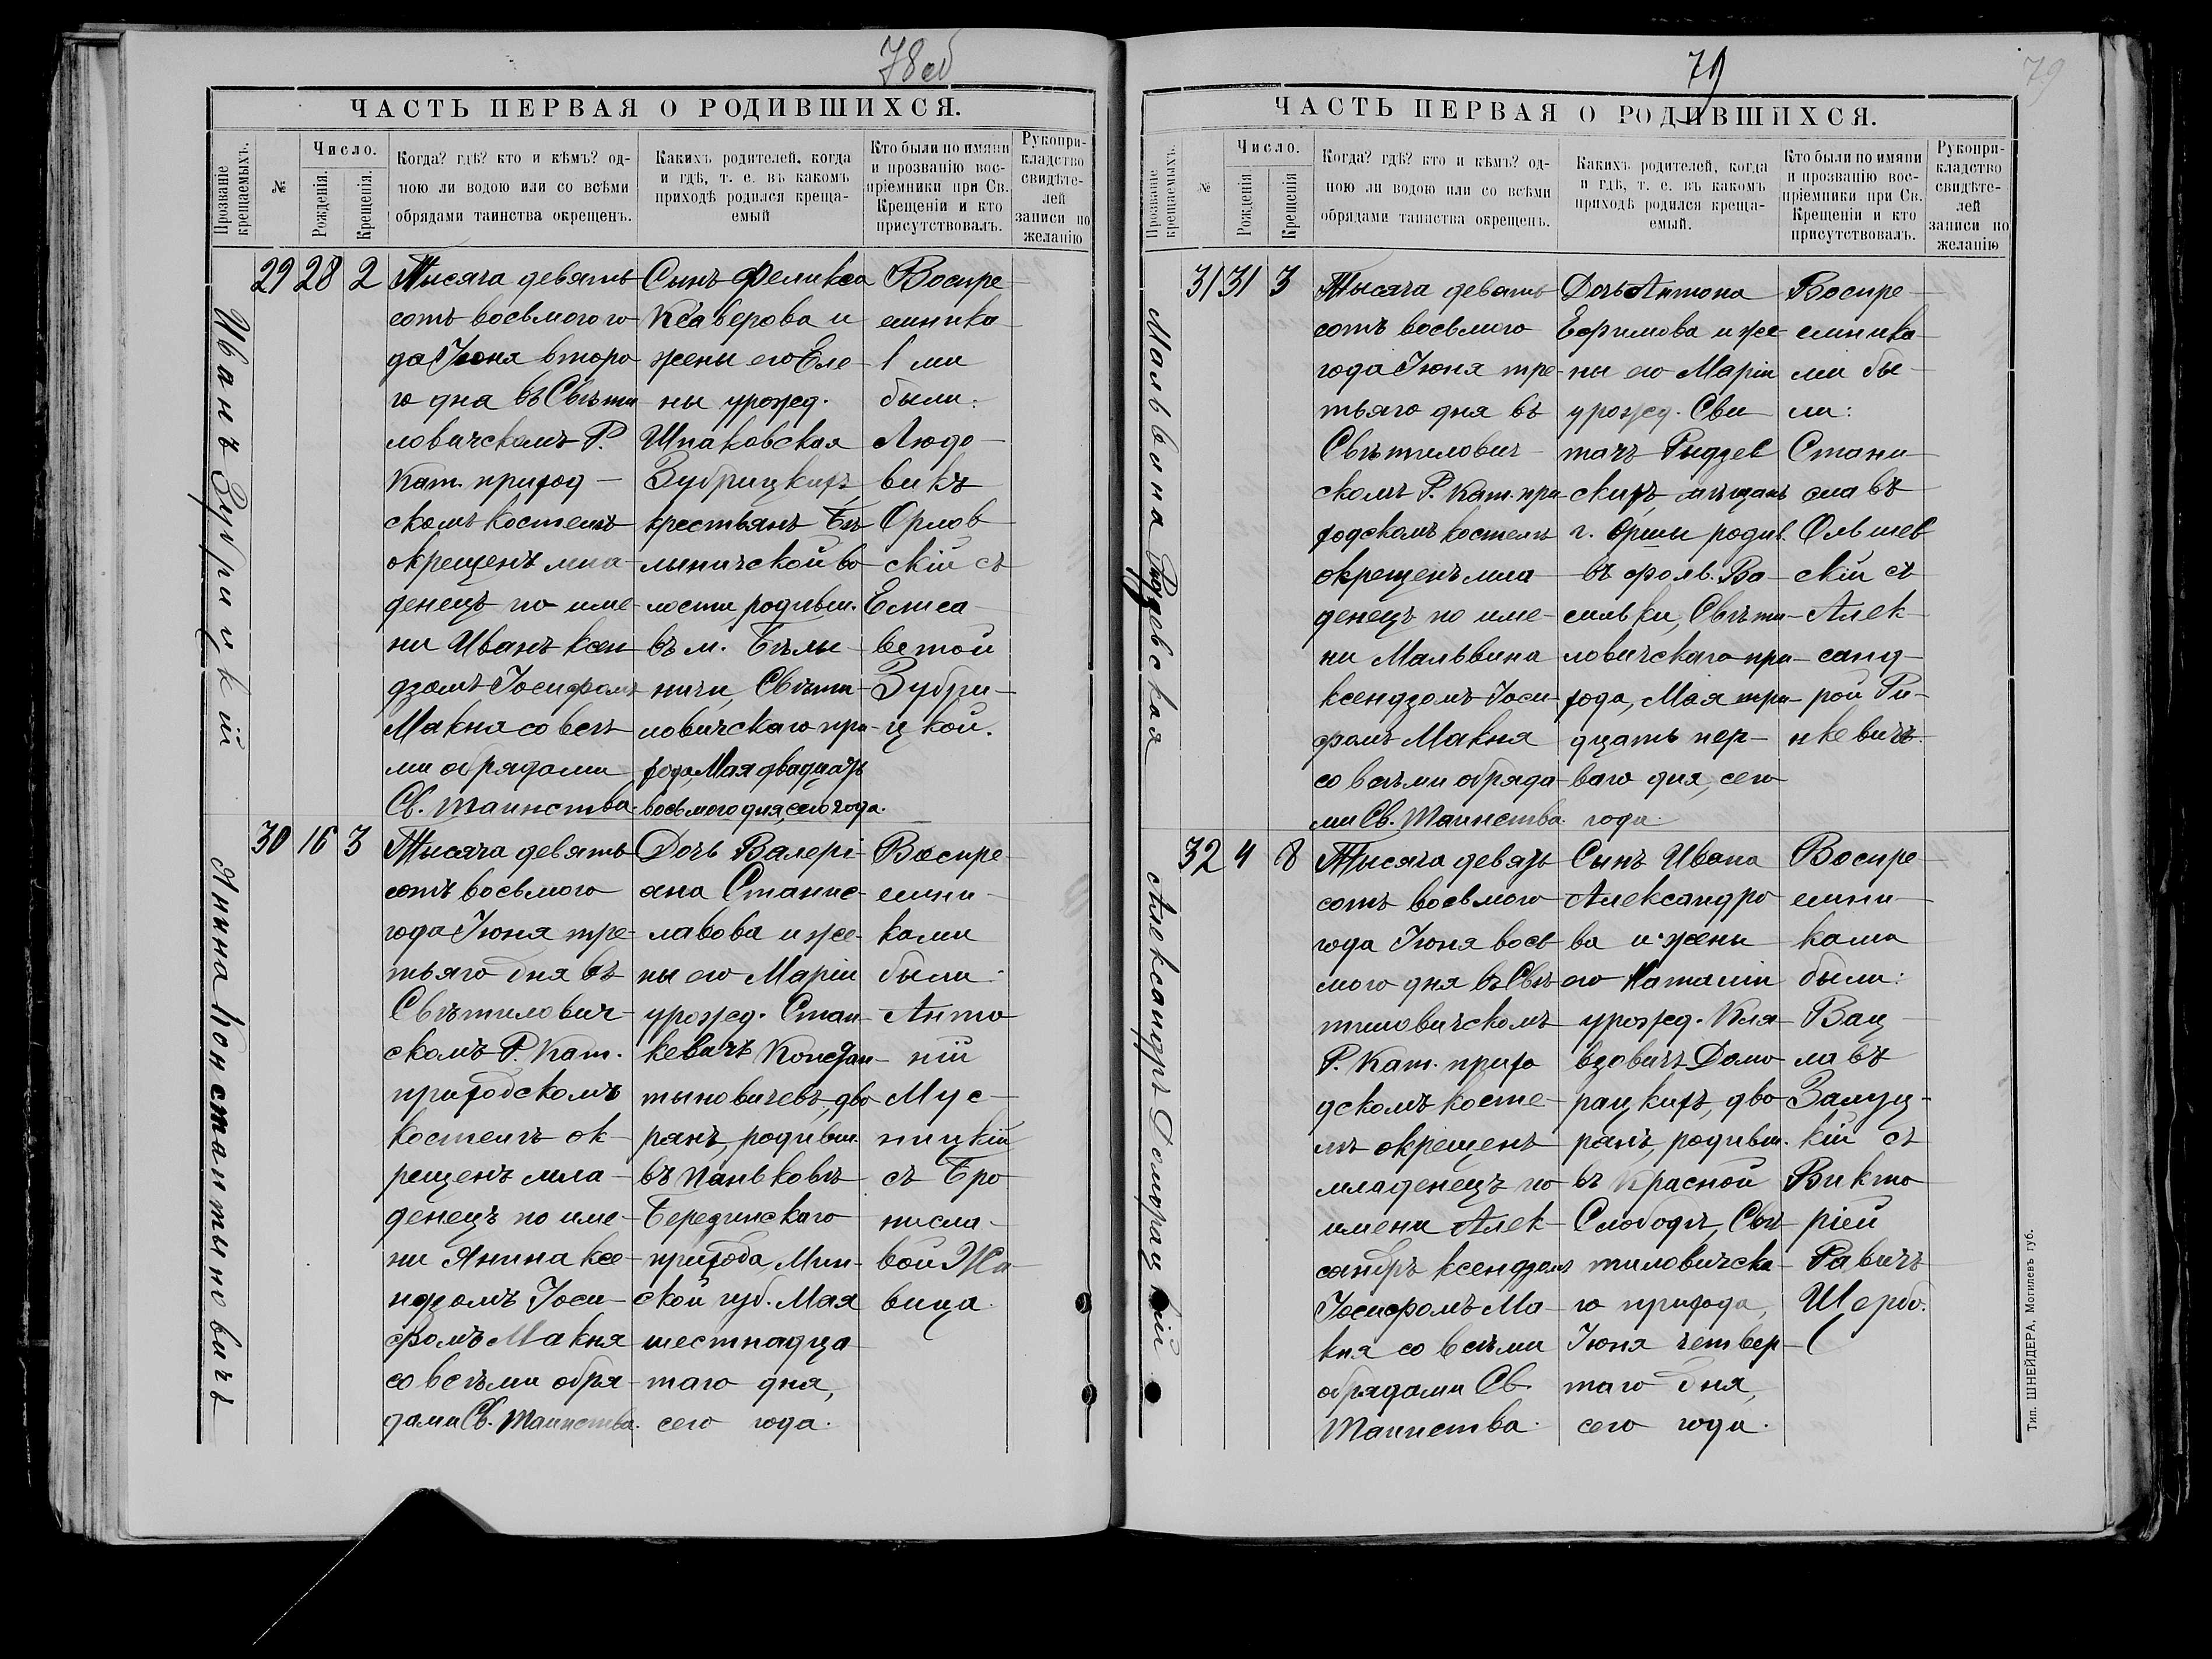 78 об
ЧАСТЬ ПЕРВАЯ О РОДИВШИХСЯ.
Прозваніе крещаемыхъ.
№
Число.
Рожденія.
Крещенія.
Когда? гдѣ? кто и кѣмъ? од-
ною ли водою или со всѣми
обрядами таинства окрещенъ.
Какихъ родителей, когда
и гдѣ, т. е. въ какомъ
приходѣ родился креща-
емый
Кто были по имяни
и прозванію вос-
пріемники при Св.
Крещеніи и кто
присутствовалъ.
Рукопри-
кладство
свидѣте-
лей
записи по
желанію
Иванъ Зубрицкій
29 28 2
Тысяча девять
сотъ восьмого го
да Іюня второ
го дна въ Свѣти
ловичскомъ Р.
Кат. приход-
скомъ костелѣ
окрещенъ мла-
денецъ по име-
ни Иванъ ксен
дзомъ Іосифомъ
Макня со всѣ
ми обрядами
Св. Таинства.
Сынъ Феликса
Ксаверова и
жены его Еле-
ны урожед.
Шпаковская
Зубрицкихъ
крестьянъ Бѣ
лыничской во
лости, родивш.
въ м. Бѣлы-
ничи, Свѣти-
ловичскаго при-
хода, Мая двадцать
восьмого дня, сего года.
Воспре-
емника
ми
были:
Людо-
викъ
Орлов
скій съ
Елиса
ветой
Зубри-
цкой.
Янина Константиновичъ
30 16 3
Тысяча девять
сотъ восьмого
года Іюня тре-
тьяго дня въ
Свѣтилович-
скомъ Р. Кат.
приходскомъ
костелѣ ок-
рещенъ мла-
денецъ по име-
ни Янина ксе-
ндзомъ Іоси-
фомъ Макня
со всѣми обря-
дами Св. Таинства.
Дочь Валері-
ана Станис-
лавова и же-
ны его Маріи
урожед. Стан-
кевичъ Констан-
тыновичевъ, дво
рянъ, родивш.
въ Паньковѣ
Березинскаго
прихода, Мин-
ской губ. Мая
шестнадца
таго дня,
сего года.
Воспре-
емни-
ками
были:
Анто-
ній
Мус-
ницкій
съ Бро
нисла-
вой
вица.
79
79
ЧАСТЬ ПЕРВАЯ О РОДИВШИХСЯ.
Прозваніе крещаемыхъ.
№
Число.
Рожденія
Крещенія
Когда? гдѣ? кто и кѣмъ? од-
ною ли водою или со всѣми
обрядами таинства окрещенъ.
Какихъ родителей, когда
и гдѣ, т. е. въ какомъ
приходѣ родился креща-
емый.
Кто были по имяни
и прозванію вос-
пріемники при Св.
Крещеніи и кто
присутствовалъ.
Рукопри-
кладство
свидѣте-
лей
записи по
желанію
Мальвина Рыдзевская
31 31 3
Тысяча девять
сотъ восьмого
года Іюня тре-
тьяго дня въ
Свѣтилович-
скомъ Р. Кат. при
ходскомъ костелѣ
окрещенъ мла
денецъ по име-
ни Мальвина
ксендзомъ Іоси-
фомъ Макня
со всѣми обряда-
ми Св. Таинства.
Дочь Антона
Ефимова и же-
ны его Маріи
урожед. Сви
тачъ Рыдзев
скихъ, мѣщанъ
г. Орши родив.
въ фольв. Ва-
сильки, Свѣти-
ловичскаго при-
хода, Мая три-
дцать пер-
ваго дня, сего
года.
Воспре-
емника
ми бы-
ли:
Стани-
славъ
Ольшев
скій съ
Алек
санд-
рой Ри-
нкевичъ.
Александръ Домерацкій
32 4 8
Тысяча девять
сотъ восьмого
года Іюня вось
мого дня въ Свѣ
тиловичскомъ
Р. Кат. прихо
дскомъ косте-
лѣ окрещенъ
младенецъ по
имени Алек-
сандръ ксендзомъ
Іосифомъ Ма-
кня со всѣми
обрядами Св.
Таинства.
Сынъ Ивана
Александро
ва и жены
его Наталіи
урожед. Кля-
взовичъ Доме
рацкихъ, дво
рянъ, родивш.
въ Красной
Слободѣ, Свѣ-
тиловичска-
го прихода,
Іюня четвер-
таго дня,
сего года.
Воспре-
емни-
ками
были:
Вац-
лавъ
Залуц-
кій съ
Викто
ріей
Равичъ
Щерба.
Тип. ШНЕЙДЕРА, Могилевъ губ.